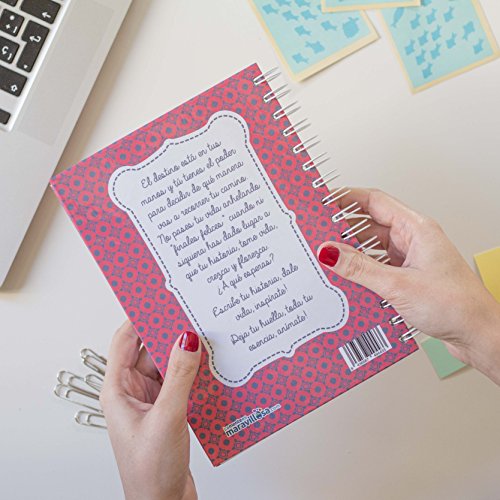 El destino está en tus
manos y tú tienes el poder
para decidir de qué manera
vas a recorrer tu camino.
No pases tu vida anhelando
"finales felices" cuando ni
siquiera has dado lugar a
que tu historia tome vida,
crezca y florezca.
¿A qué esperas?
Escribe tu historia, dale
vida, inspírate!
Deja tu huella, toda tu
esencia, anímate!
maravillosa.com